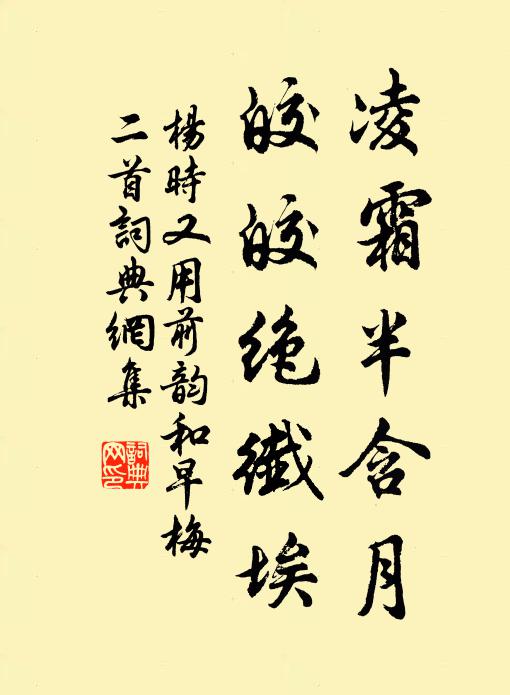 凌霜半含月
皎皎绝纖埃
楊時又用前韵和早梅
二首詞典網集
詞典网印